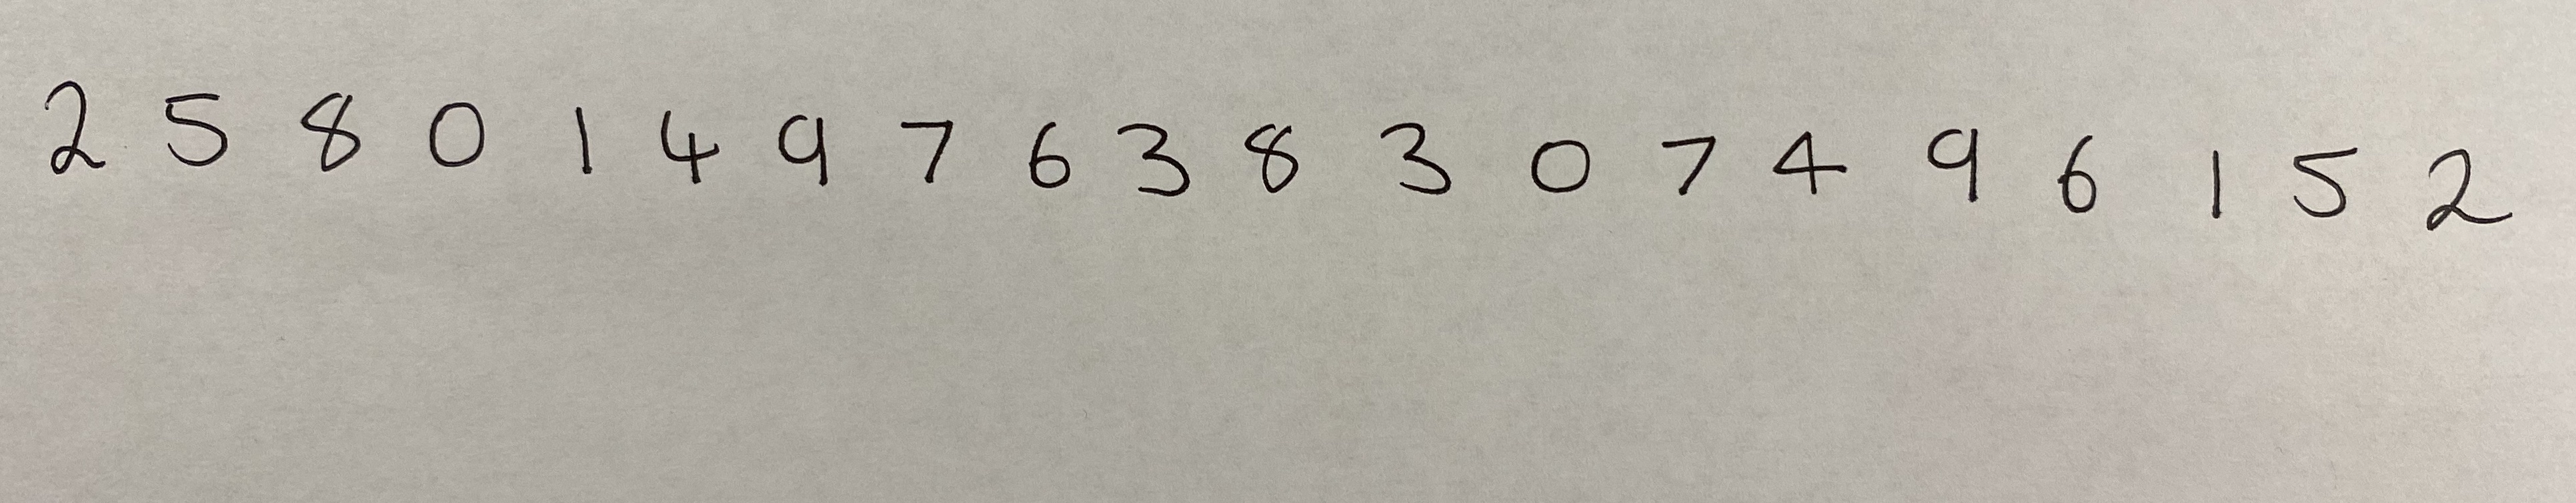 2 5 8 0 1 4 9 7 6 3 8 3 0 7 4 9 6 1 5 2